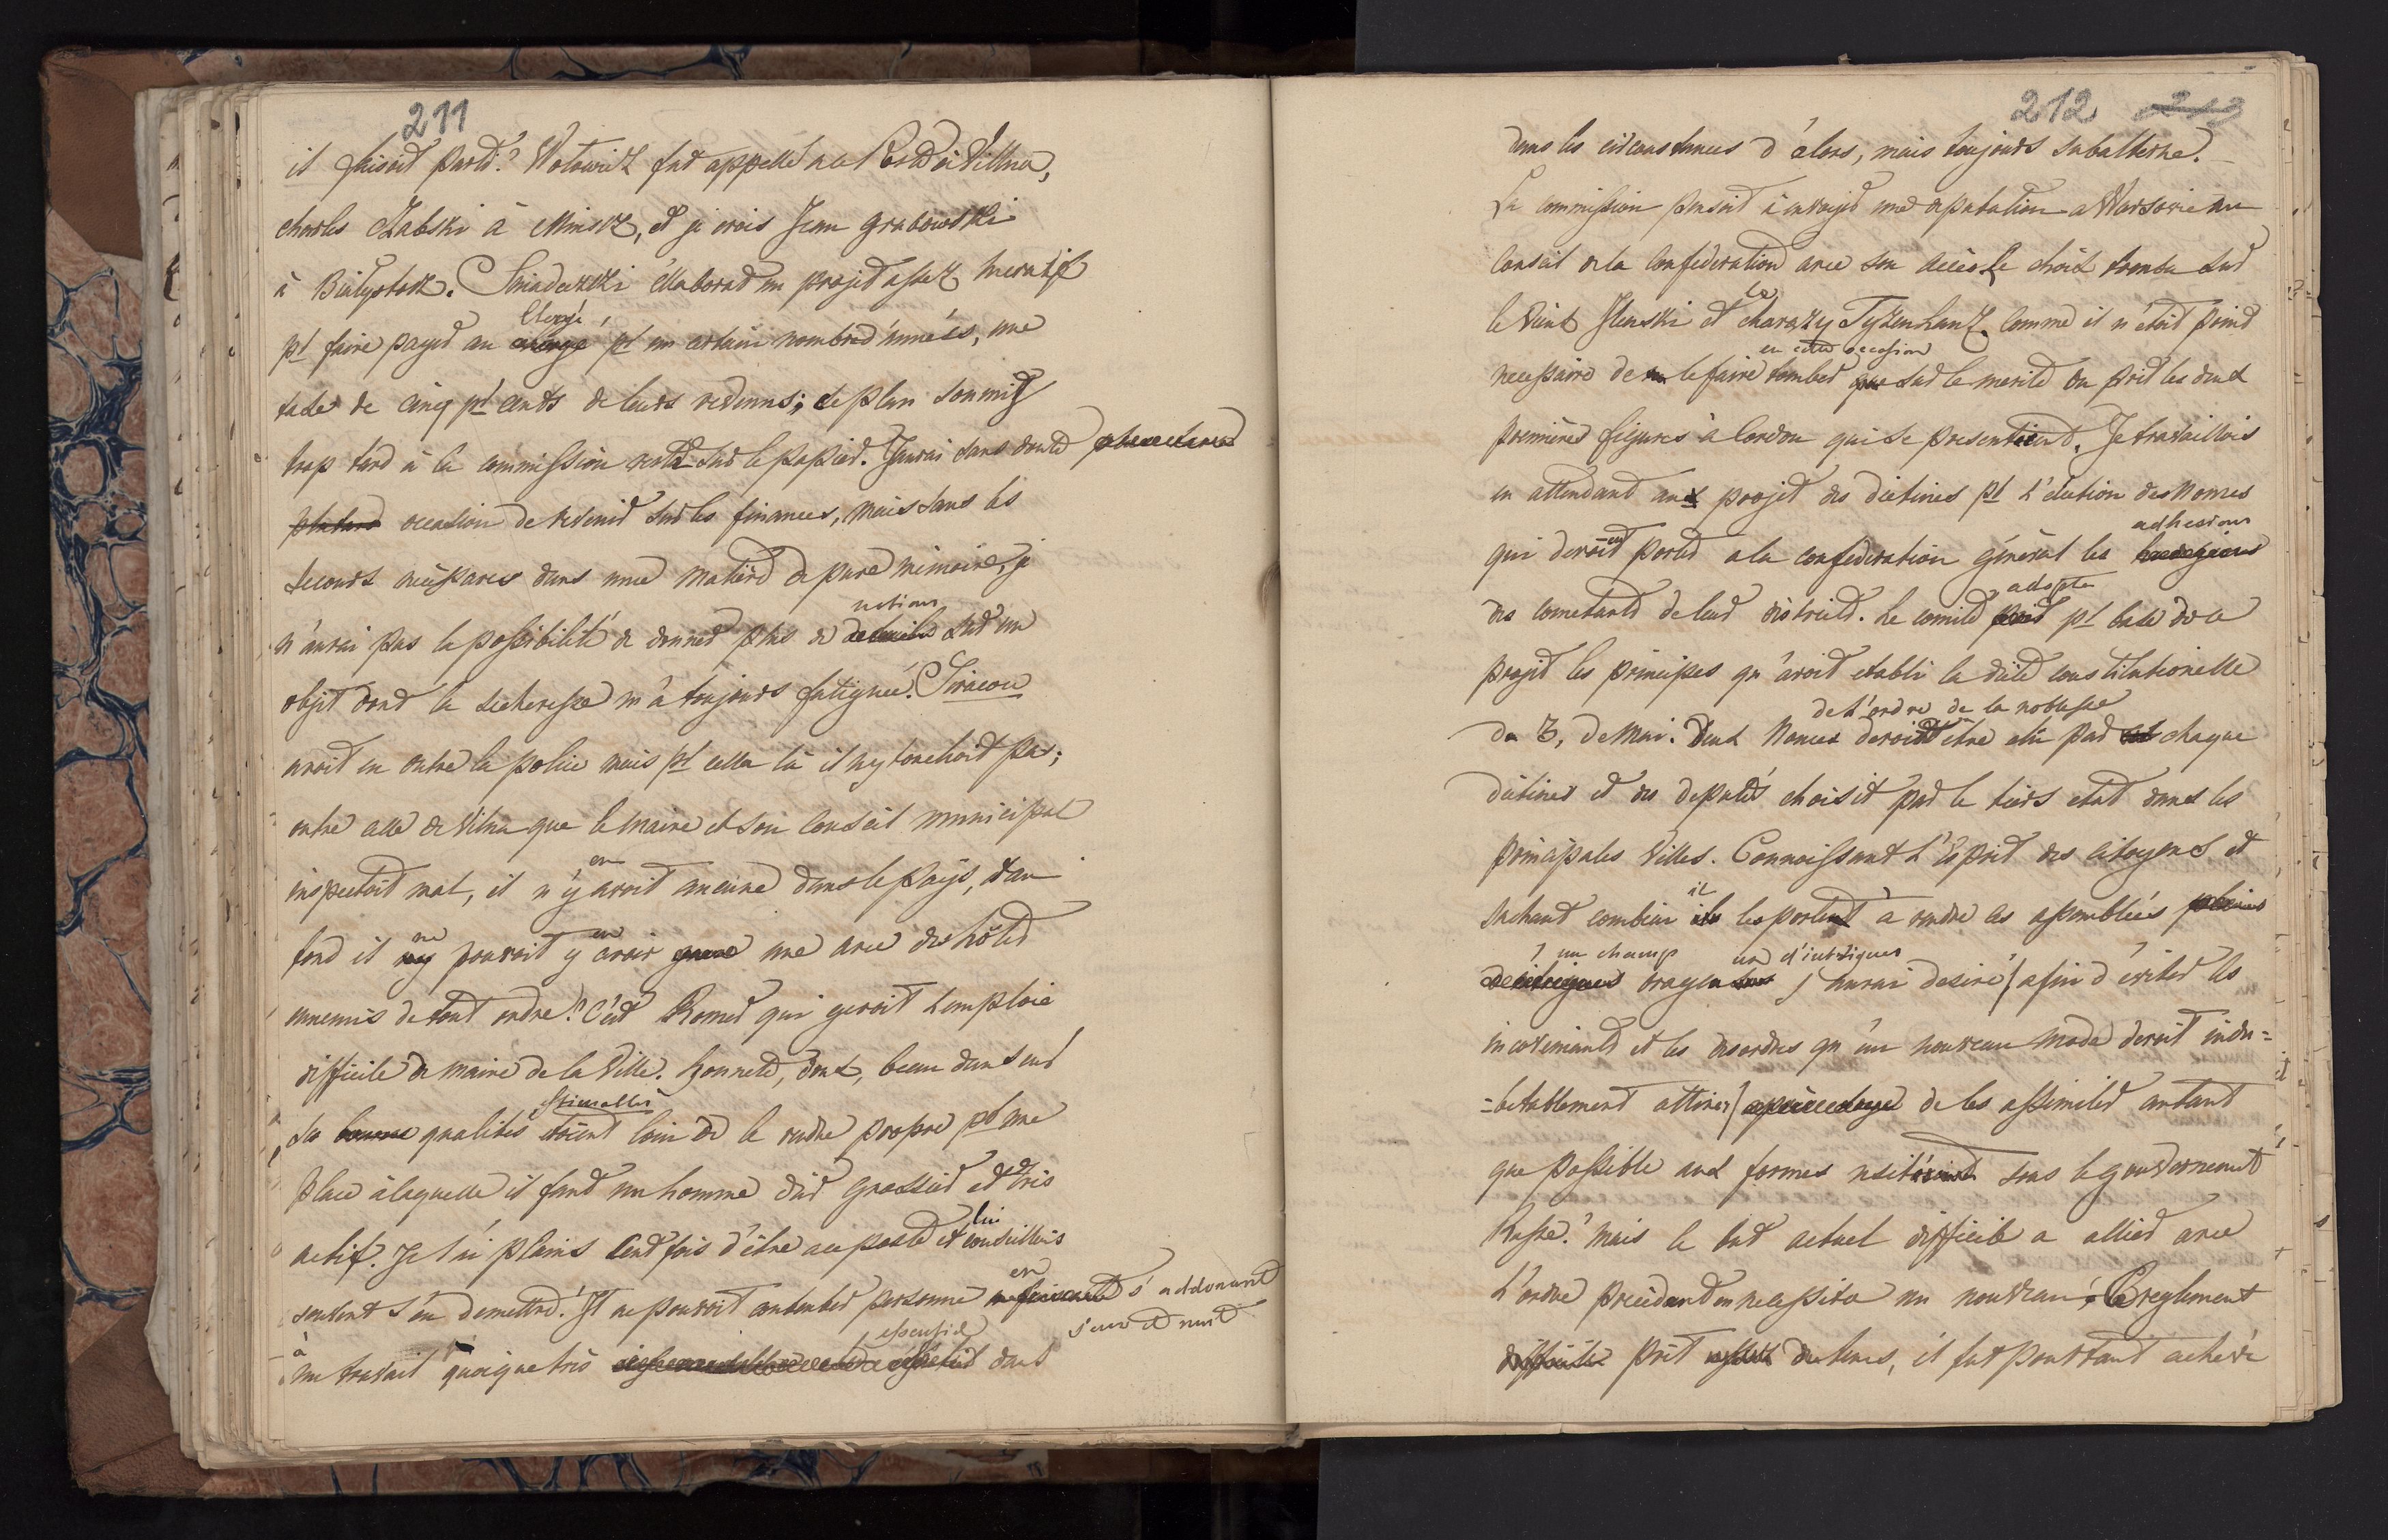 211
il faisoit parti? Wolowicz fut appellé a la Poste à Villna,
charles Czabski à Minsk, et je crois Jean Grabowski
à Bialystock. Sniadeckki ellaborat un projet assez lucratif
pt faire payer au Clergé, pt un certain nombre d'années, une
taxe de cinq pt cents de leurs revenus; ce plan soumis
trop tard à la commission resta sur le papier. J'aurai sans doute
plutard occasion de revenir sur les finances, mais sans les
secours necéssaires dans une matière de pure mémoire, je
n'aurai pas la possibilité de donner plus de notions sur un
objet dont la secheresse m'a toujours fatiguée. Siracou
avoit en outre la police mais pt cella là il n'y touchoit pas;
outre celle de Vilna que le Maire et son Conseil municipal
inspectoit mal, il n'y en avoit aucune dans le pays, et au
fond il ne pouvoit y en avoir une avec des hôtes
ennemis de tout ordre? C'est Romer qui geroit l'emploie
difficile de Maire de la Ville. honnete, doux, beau danseur
ses qualités estimables etoient loin de le rendre propre pt une
place à laquelle il faut un homme dur grossier et très
actif. Je l'ai plains cent fois d'être au poste et lui conseillois
souvent s'en demettre. Il ne pouvoit contenter personne en s'addonnant
jour et nuit
à un travail quoique très essensiel dans
212 213
dans les circonstances d'alors, mais toujours subalterne.
La commission pensoit à envoyer une deputation a Warsovie au
Conseil de la Confederation avec son accès. Le choix tomba sur
le Vieux Ilenski et le charązy Tyzenhauz. Comme il n'étoit point
necessaire de le faire tomber en cette occasion sur le merite on prit les deux
premières figures à Cordon qui se presentoient. Je travaillois
en attendant aux projet des dietines pt l'élection des Nonces
qui devoient porter a la confederation générat les adhesions
des cometants de leur districts. Le comité adopta pt base de ce
projet les principes qu'avoit etabli la diète constitutionelle
du 3, de Mai. Deux Nonces de l'ordre de la noblesse devoient être élu par chaque
diètines et des deputés choisit par le tiers etat dans les
principales Villes. Connoissant l'Esprit des citoyens et
sachant combien il les portent à rendre les assemblées
un champ orageux d'intrigues j'aurai desiré (afin d'eviter les
inconveniants et les desordres qu'un nouveau mode devoit indu=
=betablement attirer) de les assimiler autant
que possible aux formes usités sous le gouvernement
Russe. Mais le but actuel difficile a allier avec
l'ordre précédant en necessita un nouveau; Ce reglement
prit du tems, il fut pourtant acheve